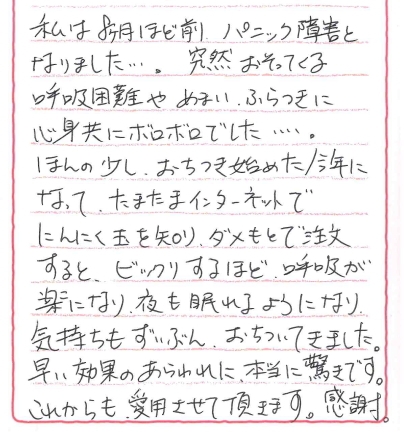 私は8ヶ月ほど前、パニック障害と
なりました…。突然おそってくる
呼吸困難や めまい、ふらつきに
心身共にボロボロでした…。
ほんの少し、おちつき始めた今年に
なって、たまたまインターネットで
にんにく玉を知り、ダメもとで注文
すると、ビックリするほど、呼吸が
楽になり、夜も眠れるようになり、
気持ちもずいぶん、おちついてきました。
早い効果のあらわれに、本当に驚きです。
これからも、愛用させて頂きます。感謝。